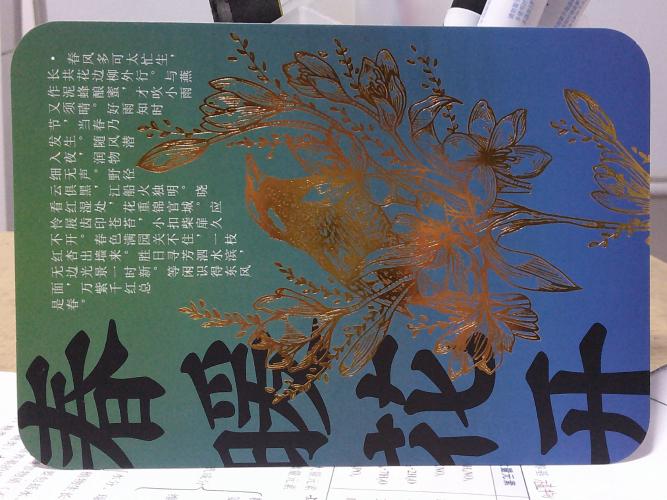 · 春风多可太忙生，
长共花边柳外行。与燕
作泥蜂酿蜜，才吹小雨
又须晴。好雨知时
节，当春乃
发生。随风潜
入夜，润物
细无声。野径
云俱黑，江船火独明。晓
看红湿处，花重锦官城。应
怜屐齿印苍苔，小扣柴扉久
不开。春色满园关不住，一枝
红杏出墙来。胜日寻芳泗水滨，
无边光景一时新。等闲识得东风
面，万紫千红总
是春。
春暖花开